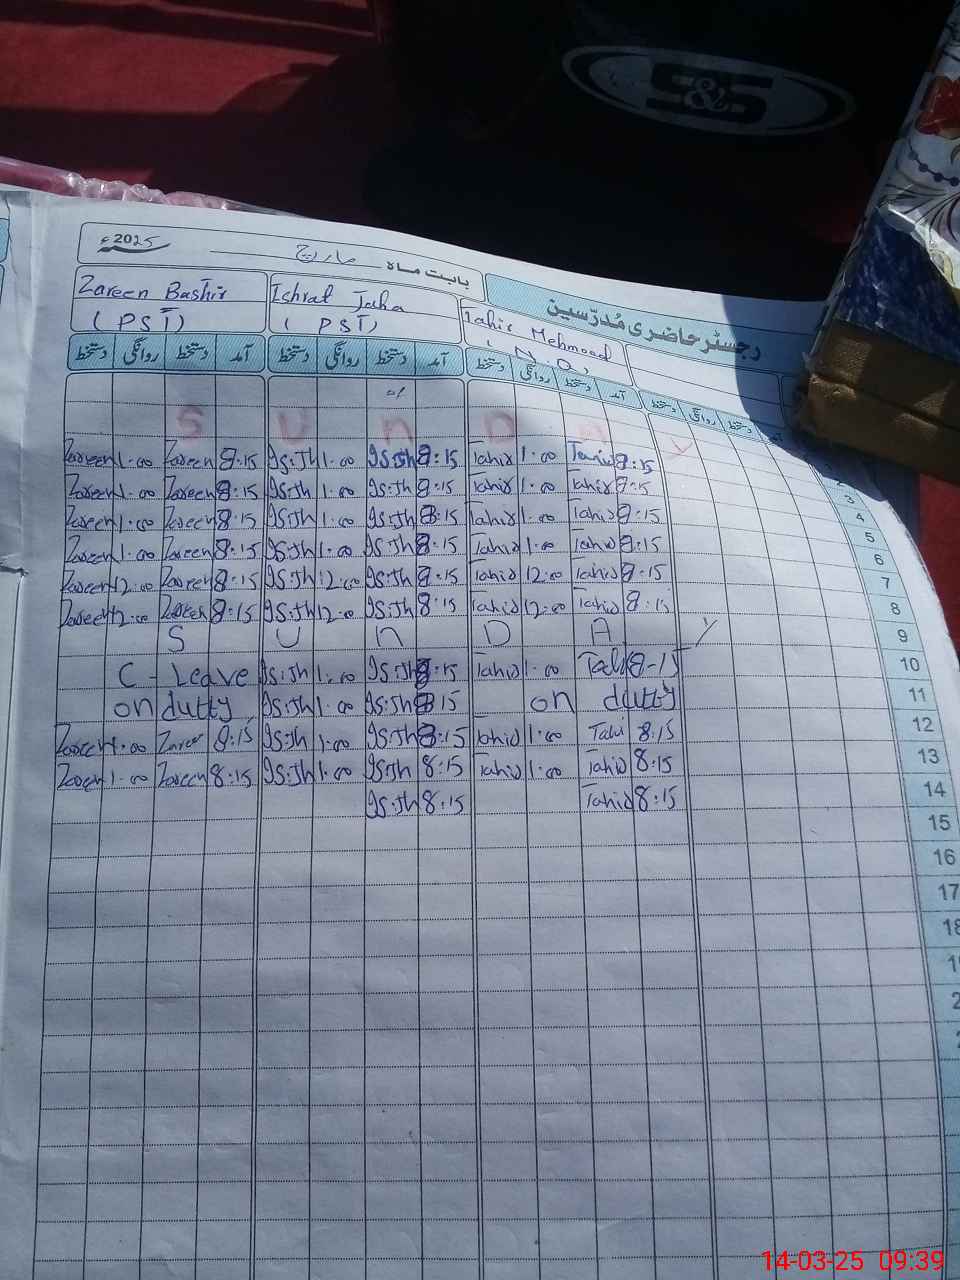 S&S
2025ء
بابت ماہ مارچ
رجسٹر حاضری مُدرّسین
Zareen Bashir
(PST)
Ishrat Jaha
(PST)
Tahir Mehmood
آمد دستخط روانگی دستخط آمد دستخط روانگی دستخط آمد دستخط روانگی دستخط دستخط روانگی دستخط
S U n D A Y
Zareen 1:00 Zareen 8:15 Is:Jh 1:00 Is:Jh 8:15 Tahir 1:00 Tahir 8:15
Zareen 1:00 Zareen 8:15 Is:Jh 1:00 Is:Jh 8:15 Tahir 1:00 Tahir 8:15 3
Zareen 1:00 Zareen 8:15 Is:Jh 1:00 Is:Jh 8:15 Tahir 1:00 Tahir 8:15 4
Zareen 1:00 Zareen 8:15 Is:Jh 1:00 Is:Jh 8:15 Tahir 1:00 Tahir 8:15 5
Zareen 12:00 Zareen 8:15 Is:Jh 12:00 Is:Jh 8:15 Tahir 12:00 Tahir 8:15 6
Zareen 12:00 Zareen 8:15 Is:Jh 12:00 Is:Jh 8:15 Tahir 12:00 Tahir 8:15 7
8
S U n D A Y 9
C-Leave Is:Jh 1:00 Is:Jh 8:15 Tahir 1:00 Tahi 8-15 10
on dutty Is:Jh 1:00 Is:Jh 8:15 on dutty 11
Zareen 1:00 Zareen 8:15 Is:Jh 1:00 Is:Jh 8:15 Tahir 1:00 Tahi 8:15 12
Zareen 1:00 Zareen 8:15 Is:Jh 1:00 Is:Jh 8:15 Tahir 1:00 Tahir 8:15 13
Is:Jh 8:15 Tahir 8:15 14
15
16
17
18
14-03-25 09:39